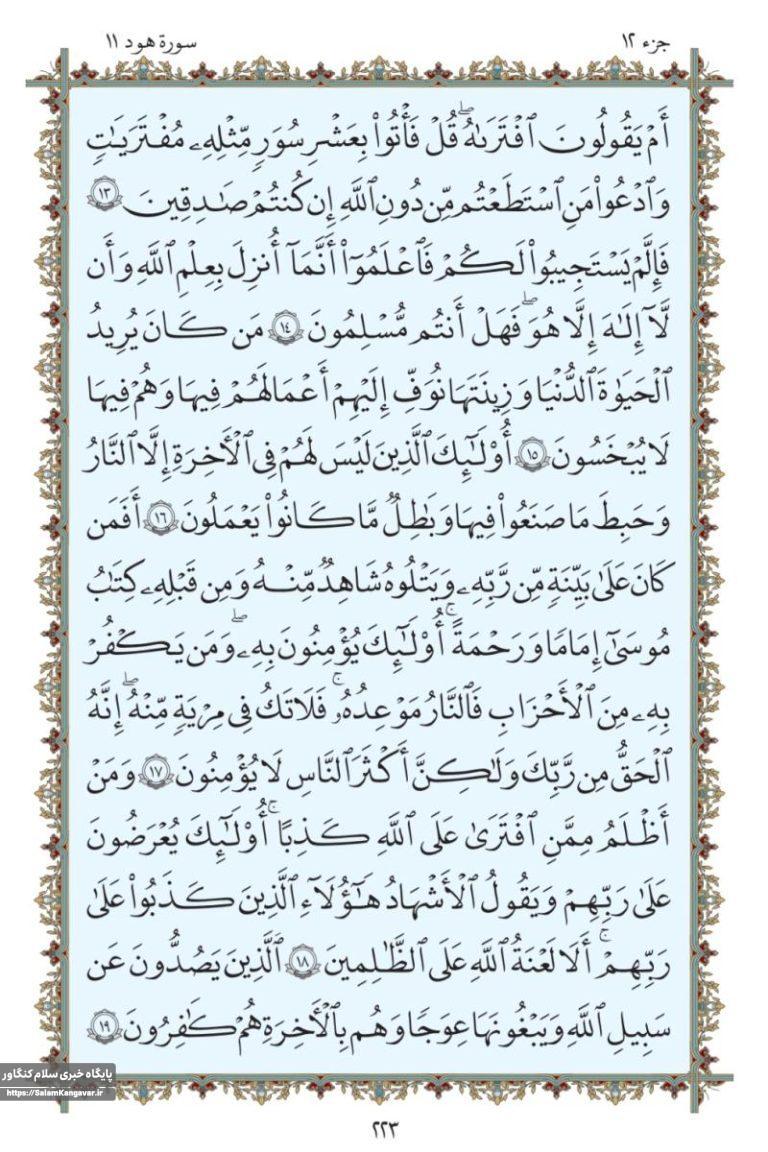 جزء ١٢
سورة هود ١١
أَمْ يَقُولُونَ ٱفْتَرَىٰهُ ۖ قُلْ فَأْتُوا۟ بِعَشْرِ سُوَرٍ مِّثْلِهِۦ مُفْتَرَيَـٰتٍ
وَٱدْعُوا۟ مَنِ ٱسْتَطَعْتُم مِّن دُونِ ٱللَّهِ إِن كُنتُمْ صَـٰدِقِينَ ١٣
فَإِلَّمْ يَسْتَجِيبُوا۟ لَكُمْ فَٱعْلَمُوٓا۟ أَنَّمَآ أُنزِلَ بِعِلْمِ ٱللَّهِ وَأَن
لَّآ إِلَـٰهَ إِلَّا هُوَ ۖ فَهَلْ أَنتُم مُّسْلِمُونَ ١٤ مَن كَانَ يُرِيدُ
ٱلْحَيَوٰةَ ٱلدُّنْيَا وَزِينَتَهَا نُوَفِّ إِلَيْهِمْ أَعْمَـٰلَهُمْ فِيهَا وَهُمْ فِيهَا
لَا يُبْخَسُونَ ١٥ أُو۟لَـٰٓئِكَ ٱلَّذِينَ لَيْسَ لَهُمْ فِى ٱلْـَٔاخِرَةِ إِلَّا ٱلنَّارُ
وَحَبِطَ مَا صَنَعُوا۟ فِيهَا وَبَـٰطِلٌ مَّا كَانُوا۟ يَعْمَلُونَ ١٦ أَفَمَن
كَانَ عَلَىٰ بَيِّنَةٍ مِّن رَّبِّهِۦ وَيَتْلُوهُ شَاهِدٌ مِّنْهُ وَمِن قَبْلِهِۦ كِتَـٰبُ
مُوسَىٰٓ إِمَامًا وَرَحْمَةً ۚ أُو۟لَـٰٓئِكَ يُؤْمِنُونَ بِهِۦ ۖ وَمَن يَكْفُرْ
بِهِۦ مِنَ ٱلْأَحْزَابِ فَٱلنَّارُ مَوْعِدُهُۥ ۚ فَلَا تَكُ فِى مِرْيَةٍ مِّنْهُ ۖ إِنَّهُ
ٱلْحَقُّ مِن رَّبِّكَ وَلَـٰكِنَّ أَكْثَرَ ٱلنَّاسِ لَا يُؤْمِنُونَ ١٧ وَمَنْ
أَظْلَمُ مِمَّنِ ٱفْتَرَىٰ عَلَى ٱللَّهِ كَذِبًا ۚ أُو۟لَـٰٓئِكَ يُعْرَضُونَ
عَلَىٰ رَبِّهِمْ وَيَقُولُ ٱلْأَشْهَـٰدُ هَـٰٓؤُلَآءِ ٱلَّذِينَ كَذَبُوا۟ عَلَىٰ
رَبِّهِمْ ۚ أَلَا لَعْنَةُ ٱللَّهِ عَلَى ٱلظَّـٰلِمِينَ ١٨ ٱلَّذِينَ يَصُدُّونَ عَن
سَبِيلِ ٱللَّهِ وَيَبْغُونَهَا عِوَجًا وَهُم بِٱلْـَٔاخِرَةِ هُمْ كَـٰفِرُونَ ١٩
پایگاه خبری سلام کنگاور
https://SalamKangavar.ir
٢٢٣